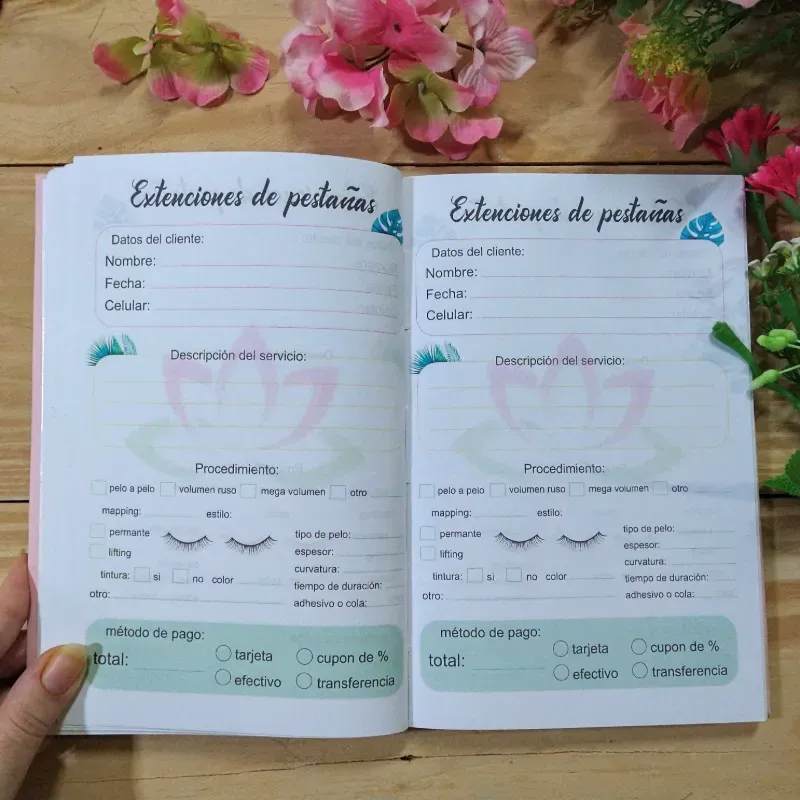 Extenciones de pestañas
Datos del cliente:
Nombre:
Fecha:
Celular:
Descripción del servicio:
Procedimiento:
pelo a pelo volumen ruso mega volumen otro
mapping: estilo:
permante
lifting
tipo de pelo:
espesor:
curvatura:
tiempo de duración:
adhesivo o cola:
tintura: si no color
otro:
método de pago:
total:
tarjeta cupon de %
efectivo transferencia
Extenciones de pestañas
Datos del cliente:
Nombre:
Fecha:
Celular:
Descripción del servicio:
Procedimiento:
pelo a pelo volumen ruso mega volumen otro
mapping: estilo:
permante
lifting
tipo de pelo:
espesor:
curvatura:
tiempo de duración:
adhesivo o cola:
tintura: si no color
otro:
método de pago:
total:
tarjeta cupon de %
efectivo transferencia